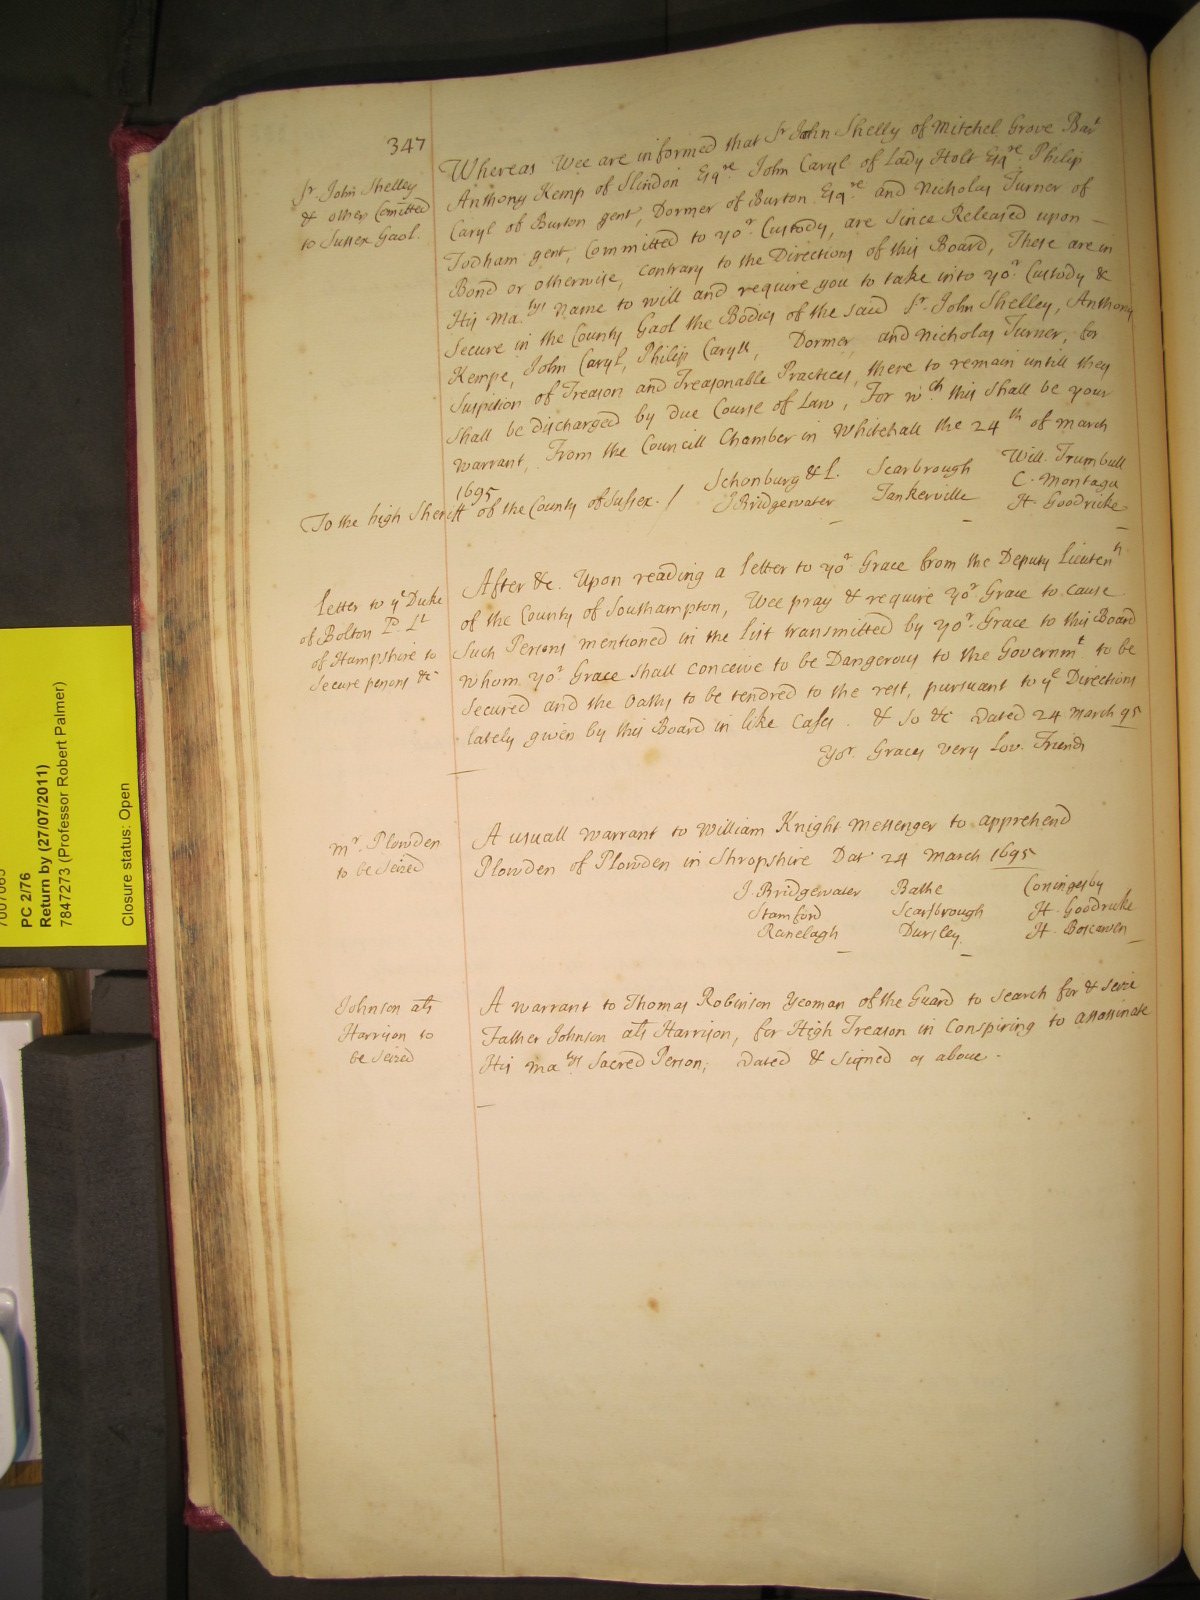 347
Sr. John Shelley
& other Comitted
to Sussex Gaol.
Whereas Wee are informed that Sr John Shelly of Mitchel Grove Bart
Anthony Kemp of Slindon Esqre. John Caryl of Lady Holt Esqre. Philip
Caryl of Burton gent, Dormer of Burton Esqre and Nicholas Turner of
Todham gent, Committed to yor. Custody, are Since Released upon
Bond or otherwise, contrary to the Directions of this Board, These are in
His Ma.tys Name to will and require you to take into yor. Custody &
Secure in the County Gaol the Bodies of the said Sr. John Shelley, Anthony
Kempe, John Caryl, Philip Caryll, Dormer, and Nicholas Turner, for
Suspition of Treason and Treasonable Practices, there to remain untill they
Shall be discharged by due Course of Law, For wch. this shall be your
warrant, From the Councill Chamber in Whitehall the 24th of March
1695
Schonburg & L. Scarbrough Will. Trumbull
J Bridgewater Tankerville C. Montagu
H. Goodricke
To the high Sheriff of the County of Sussex. /
Letter to ye Duke
of Bolton P. Lt
of Hampshire to
Secure persons &c
After &c. Upon reading a Letter to yor Grace from the Deputy Lieutents
of the County of Southampton, Wee pray & require yor. Grace to cause
Such Persons mentioned in the List transmitted by yor. Grace to this Board
whom yor Grace shall conceive to be Dangerous to the Governmt to be
Secured and the Oaths to be tendred to the rest, pursuant to ye Directions
lately given by this Board in like Cases. & So &c Dated 24 March 95
Yor. Graces very Lov. Friends
Mr. Plowden
to be Seized
A usuall Warrant to William Knight Messenger to apprehend
Plowden of Plowden in Shropshire Dat 24 March 1695
J. Bridgewater Bathe Coningesby
Stamford Scarbrough H. Goodricke
Ranelagh Dursley. H. Boscawen
Johnson als
Harrison to
be Seized
A warrant to Thomas Robinson Yeoman of the Guard to search for & Seize
Father Johnson als Harrison, for High Treason in Conspiring to assassinate
His Matys Sacred Person, Dated & Signed as above.
PC 2/76
Return by (27/07/2011)
7847273 (Professor Robert Palmer)
Closure status: Open